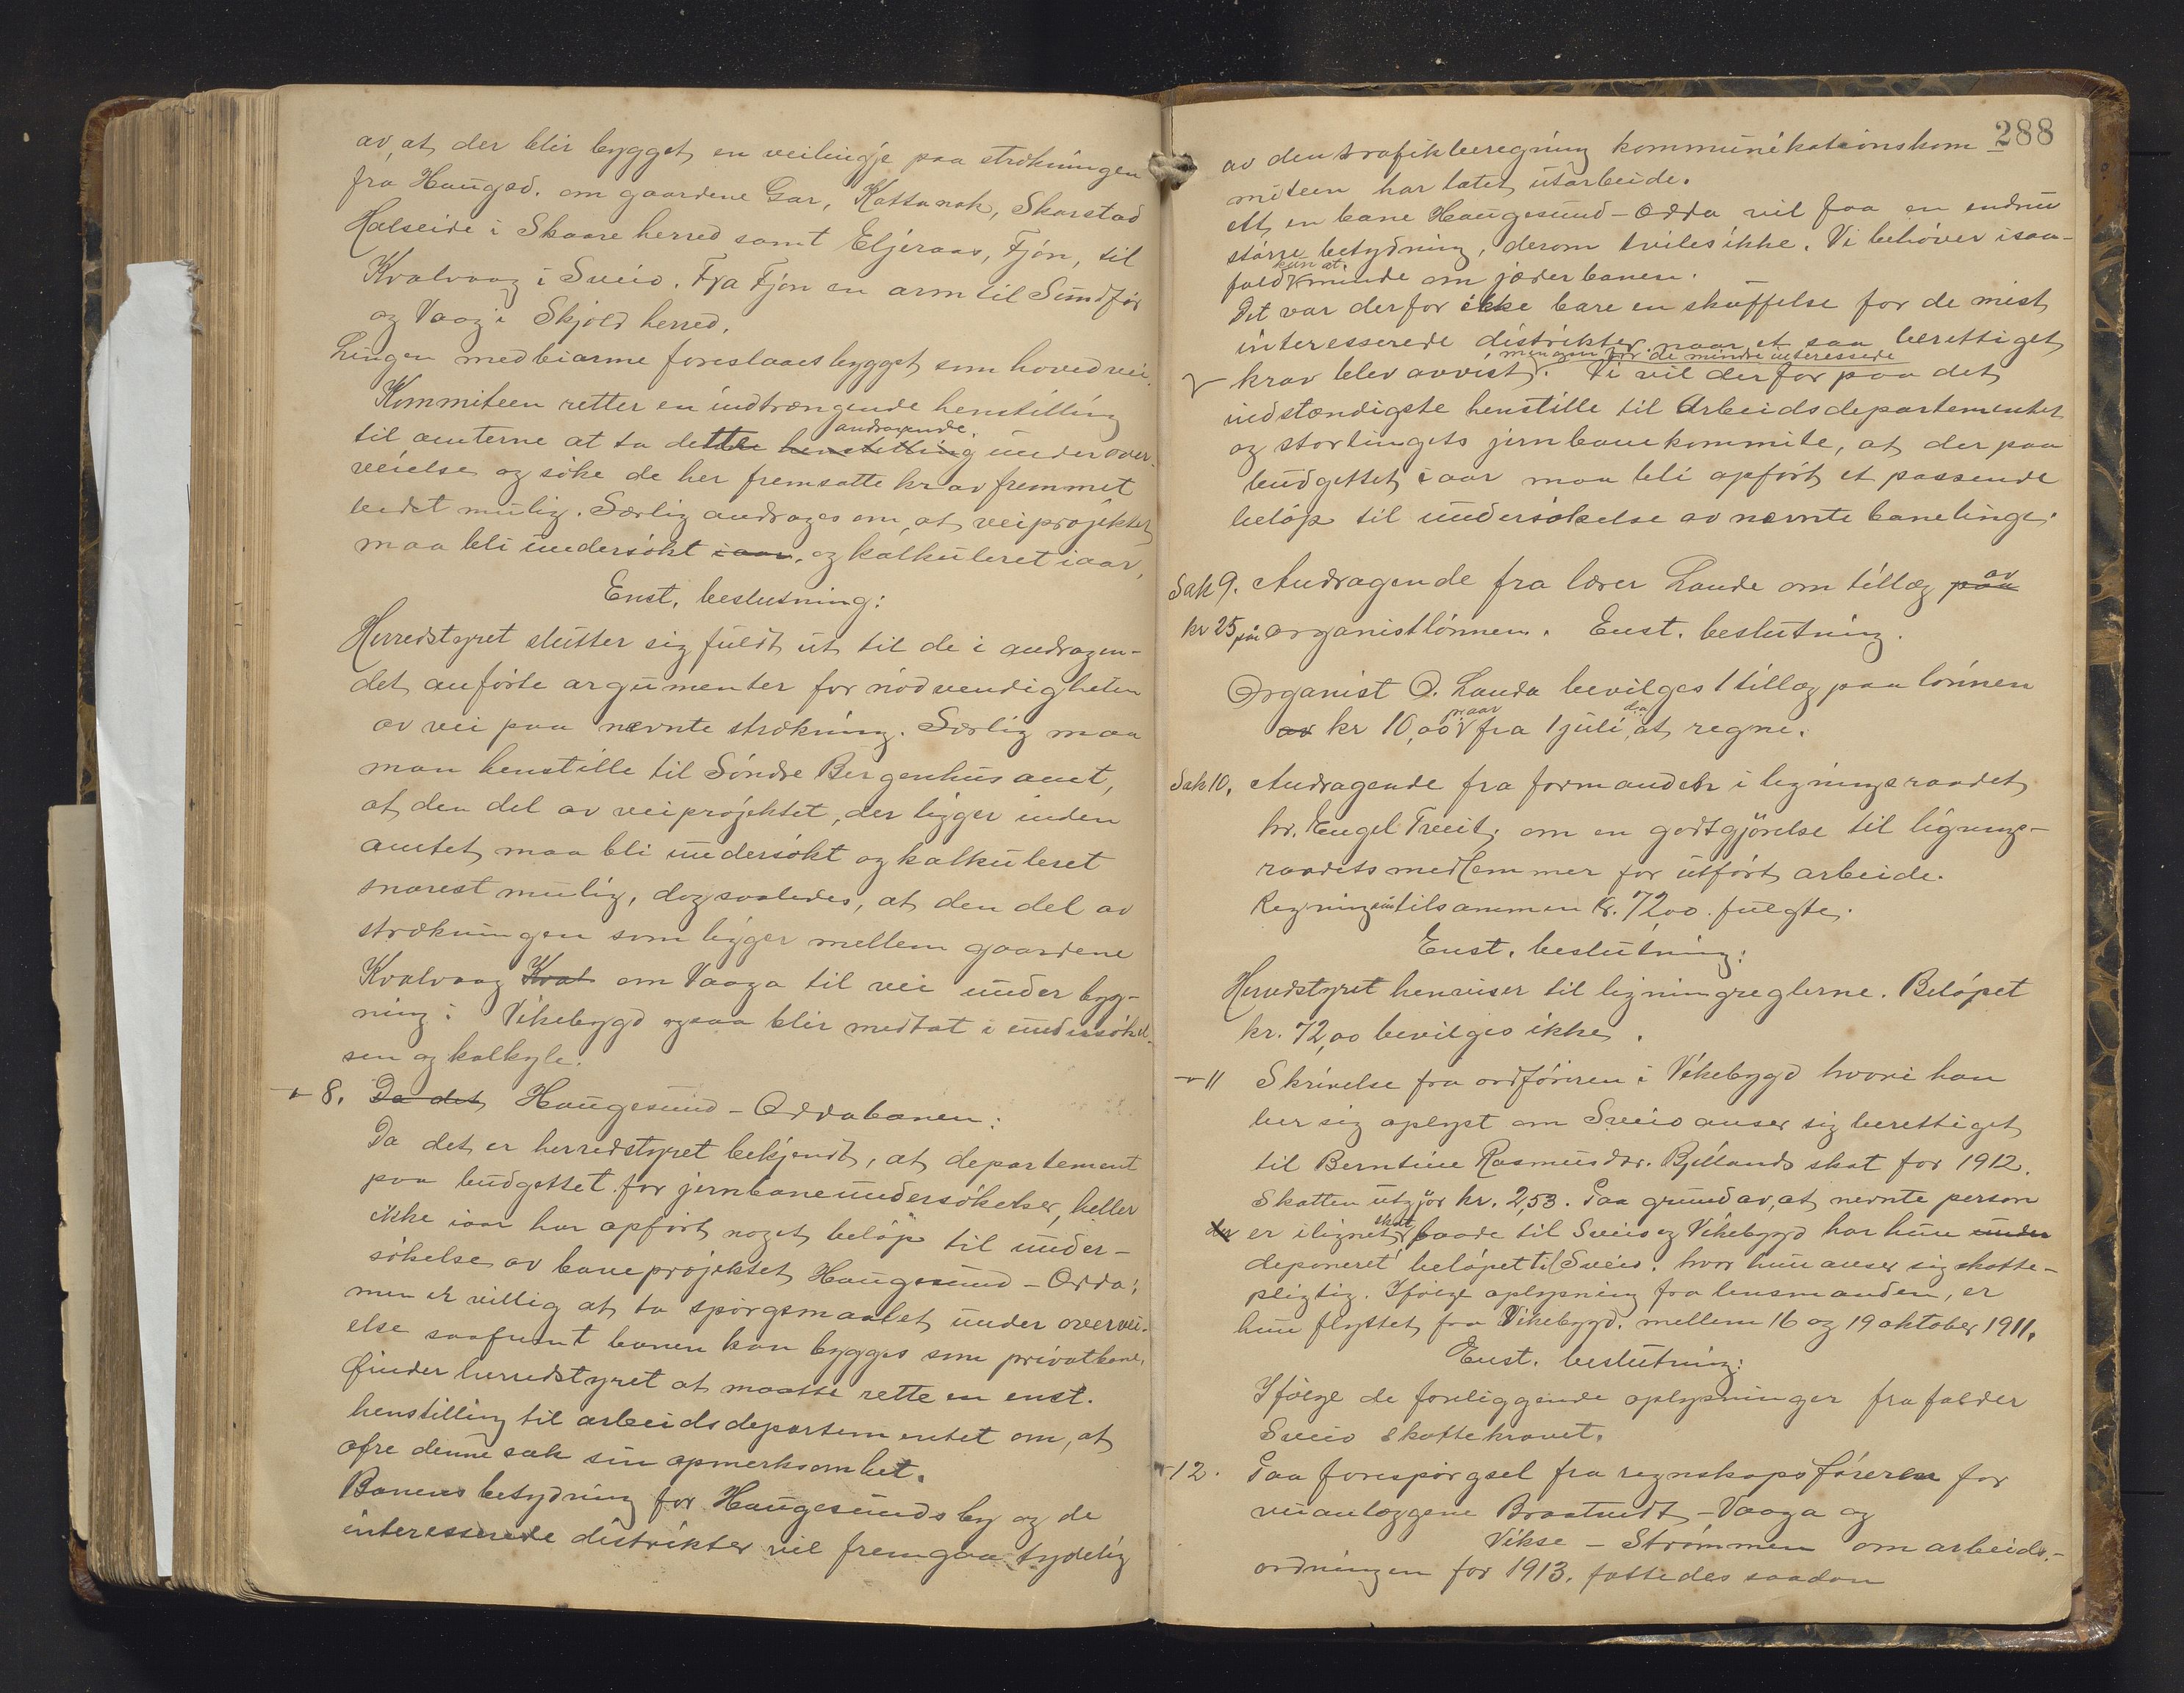 av, at der blir bygget en veilinje paa strækningen
fra Haugsd. om gaardene Gar, Kattanak, Skarstad
Halseide i Skaare herred samt Eljeraas, Fjön, til
Kvalvaag i Sveio. Fra Fjön en arm til Sundför
og Vaag i Skjold herred.
Lingen med biarme foreslaaes bygget som hovedvei.
Kommiteen retter en indtrængende henstilling
andragende
til amterne at ta dette henstilling under over-
veielse og söke de her fremsatte krav fremmet
bedst mulig. Særlig andrages om, at veiprojektet
maa bli undersökt iaar, og kalkuleret iaar,
Enst. beslutning:
Herredstyret slutter sig fuldt ut til de i andragen-
det anförte argumenter for nödvendigheten
av vei paa nævnte strækning. Særlig maa
man henstille til Söndre Bergenhus amt,
at den del av veiprojektet, der ligger inden
amtet maa bli undersökt og kalkuleret
snarest mulig, dog saaledes, at den del av
strækningen som ligger mellem gaardene
Kvalvaag Kval om Vaaga til vei under byg-
ning i Vikebygd ogsaa blir medtat i undersökel-
sen og kalkyle.
" 8. Da det Haugesund - Oddabanen:
Da det er herredstyret bekjendt, at departement
paa budgettet for jernbaneundersökelser, heller
ikke iaar har opfört noget belöp til under-
sökelse av baneprojektet Haugesund - Odda;
men er villig at ta spörgsmaalet under overvei-
else saafremt banen kan bygges som privatbane,
finder herredstyret at maatte rette en enst.
henstilling til arbeidsdepartementet om, at
ofre denne sak sin opmerksomhet.
Banens betydning for Haugesunds by og de
interesserede distrikter vil fremgaa tydelig
288
av den trafikberegning kommunikationskom-
miteen har latet utarbeide.
At en bane Haugesund - Odda vil faa en endnu
större betydning, derom tviles ikke. Vi behöver isaa-
kun at
fald minde om jæderbanen.
Det var derfor ikke bare en skuffelse for de mest
interesserede distrikter naar et saa berettiget
, men ogsaa for de mindre interessede
krav blev avvist. Vi vil derfor paa det
indstændigste henstille til Arbeidsdepartementet
og stortingets jernbanekommite, at der paa
budgettet iaar maa bli opfört et passende
belöp til undersökelse av nævnte banelinge.
Sak 9. Andragende fra lærer Lande om tillæg paa av
kr 25 paa organistlönnen. Enst. beslutning.
Organist O. Landa bevilges 1 tillæg paa lönnen
paar d.a.
av kr 10,00 fra 1 juli, at regne.
Sak 10. Andragende fra formanden i ligningsraadet
hr. Engel Tveit, om en godtgjörelse til lignings-
raadets medlemmer for utfört arbeide.
Regningen tilsammen kr. 72,00 fulgte.
Enst. beslutning:
Herredstyret henviser til ligningreglerne. Belöpet
kr. 72,00 bevilges ikke.
" 11 Skrivelse fra ordföreren i Vikebygd hvori han
ber sig oplyst om Sveio anser sig berettiget
til Berntine Rasmusdtr. Bjellands skat for 1912.
Skatten utgjör kr. 2,53. Paa grund av, at nevnte person
skat
der er ilignet baade til Sveio og Vikebygd har hun under
deponeret belöpet til Sveio, hvor hun anser sig skatte-
pligtig. Ifölge oplysning fra lensmanden, er
hun flyttet fra Vikebygd. mellem 16 og 19 oktober 1911.
Enst. beslutning:
Ifölge de foreliggende oplysninger frafalder
Sveio skattekravet.
" 12. Paa forespörgsel fra regnskapsföreren for
veianlæggene Braatveit - Vaaga og
Vikse - Strömmen om arbeids-
ordningen for 1913. fattedes saadan